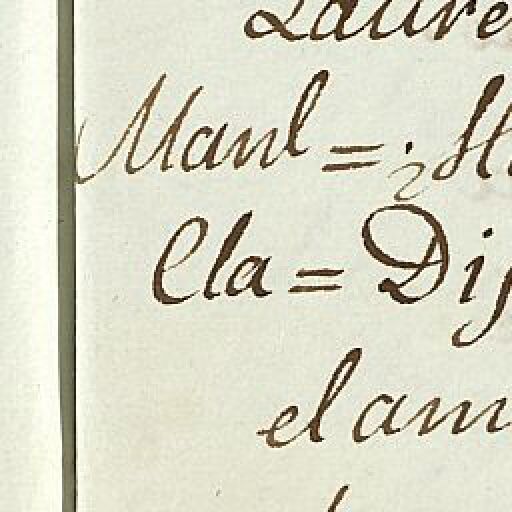 Laure
Manl = ¿ H
Cla = Dij
el am